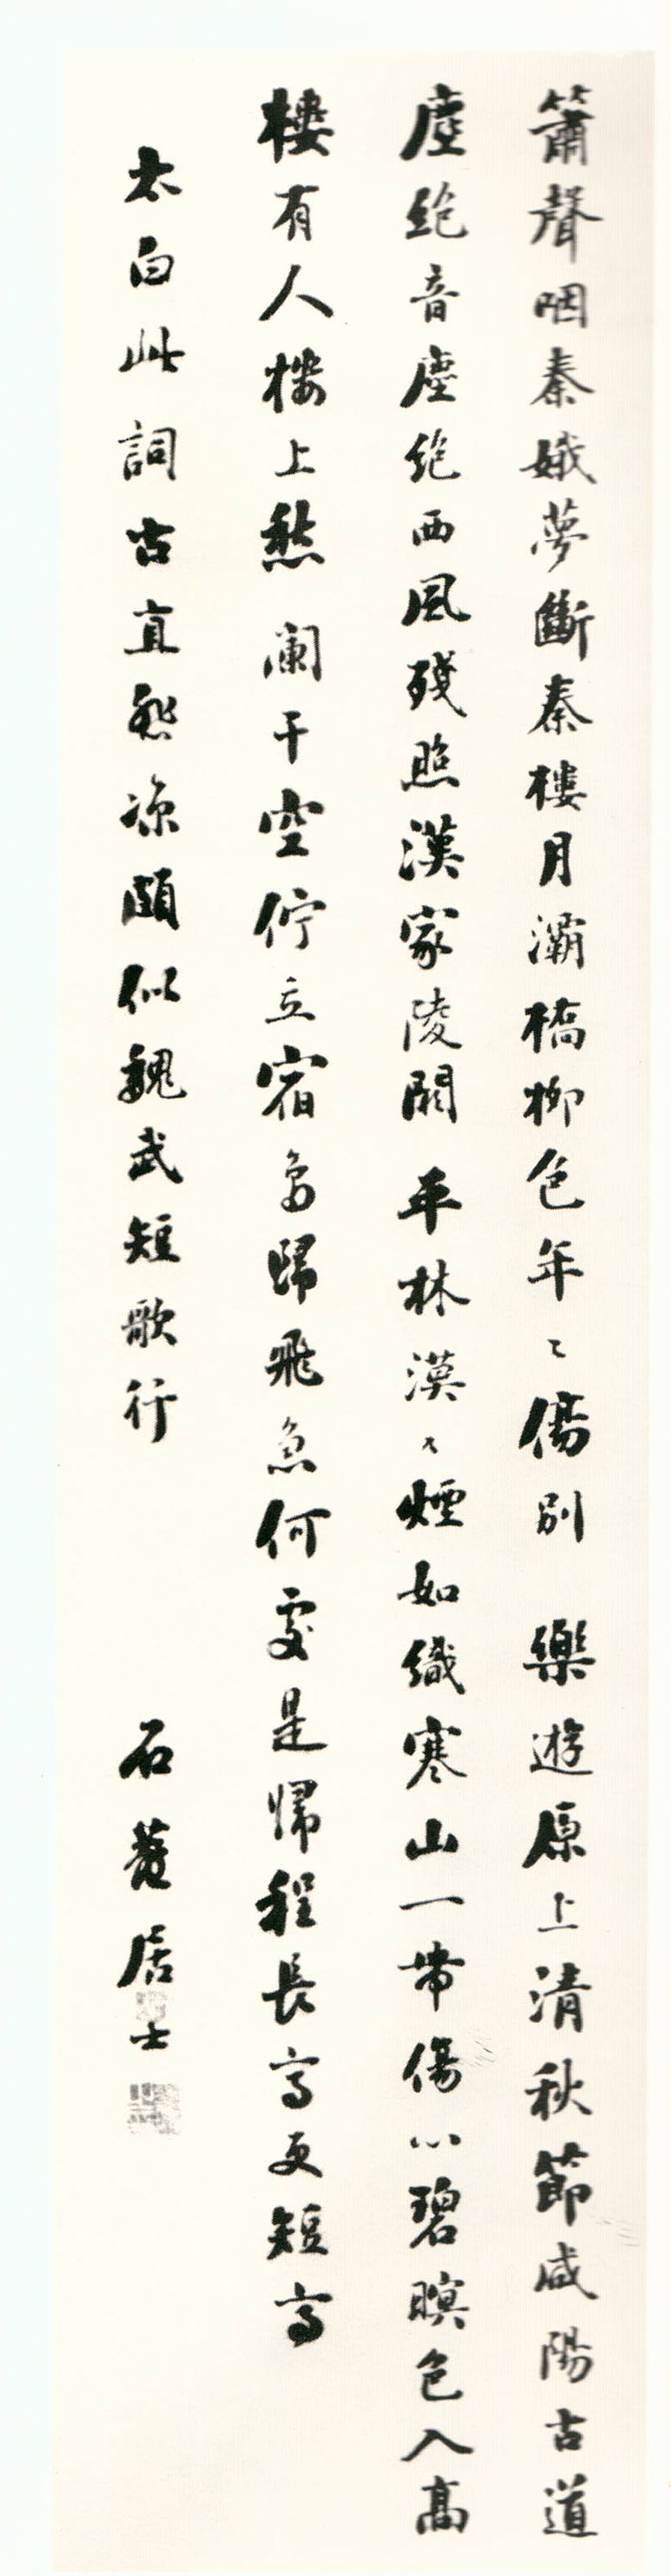 簫聲咽秦娥夢斷秦樓月灞橋柳色年〻傷別 樂遊原上清秋節咸陽古道
塵絶音塵絶西風殘照漢家陵闕 平林漠〻煙如織寒山一帶傷心碧暝色入高
樓有人樓上愁 闌干空佇立宿鳥歸飛急何處是歸程長亭更短亭
太白此詞古直悲涼頗似魏武短歌行 石菴居士